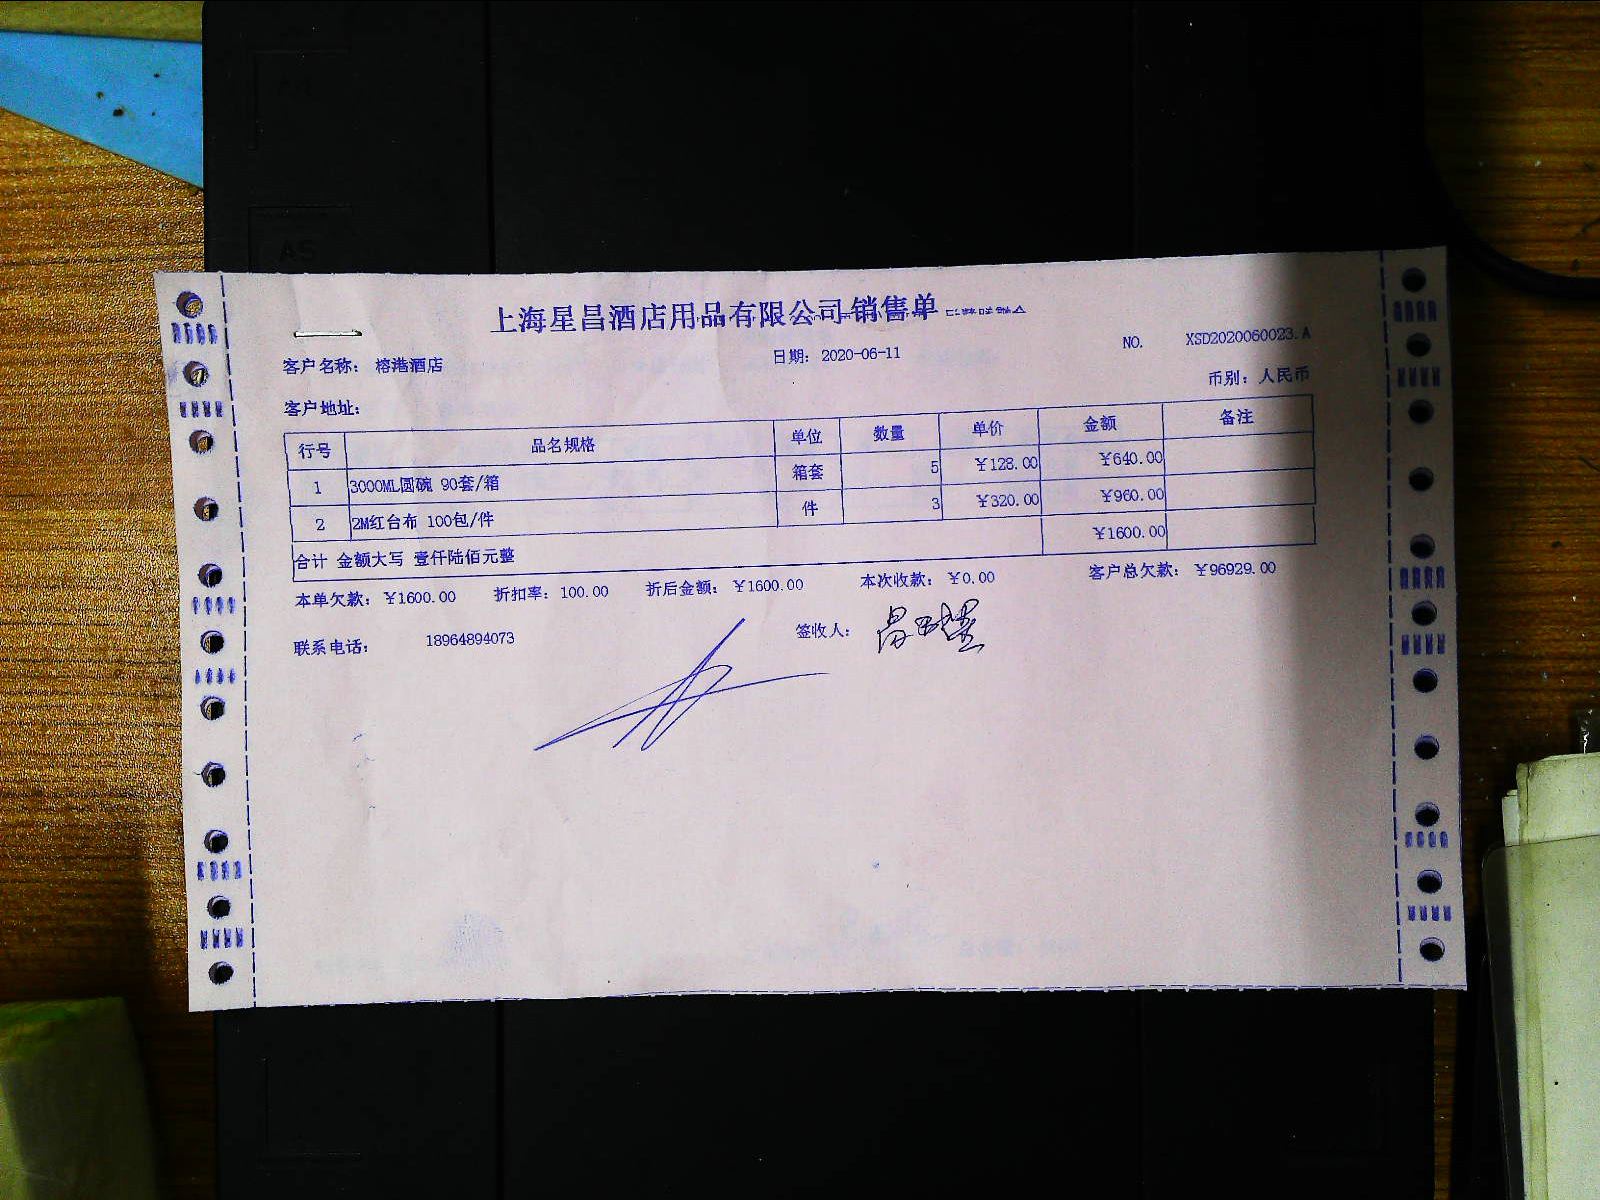 上海星昌酒店用品有限公司销售单
客户名称： 榕港酒店 日期： 2020-06-11 NO. XSD2020060023.A
客户地址： 币别： 人民币
行号 品名规格 单位 数量 单价 金额 备注
1 3000ML圆碗 90套/箱 箱套 5 ￥128.00 ￥640.00
2 2M红台布 100包/件 件 3 ￥320.00 ￥960.00
合计 金额大写 壹仟陆佰元整 ￥1600.00
本单欠款： ￥1600.00 折扣率： 100.00 折后金额： ￥1600.00 本次收款： ￥0.00 客户总欠款： ￥96929.00
联系电话： 18964894073 签收人：
A5